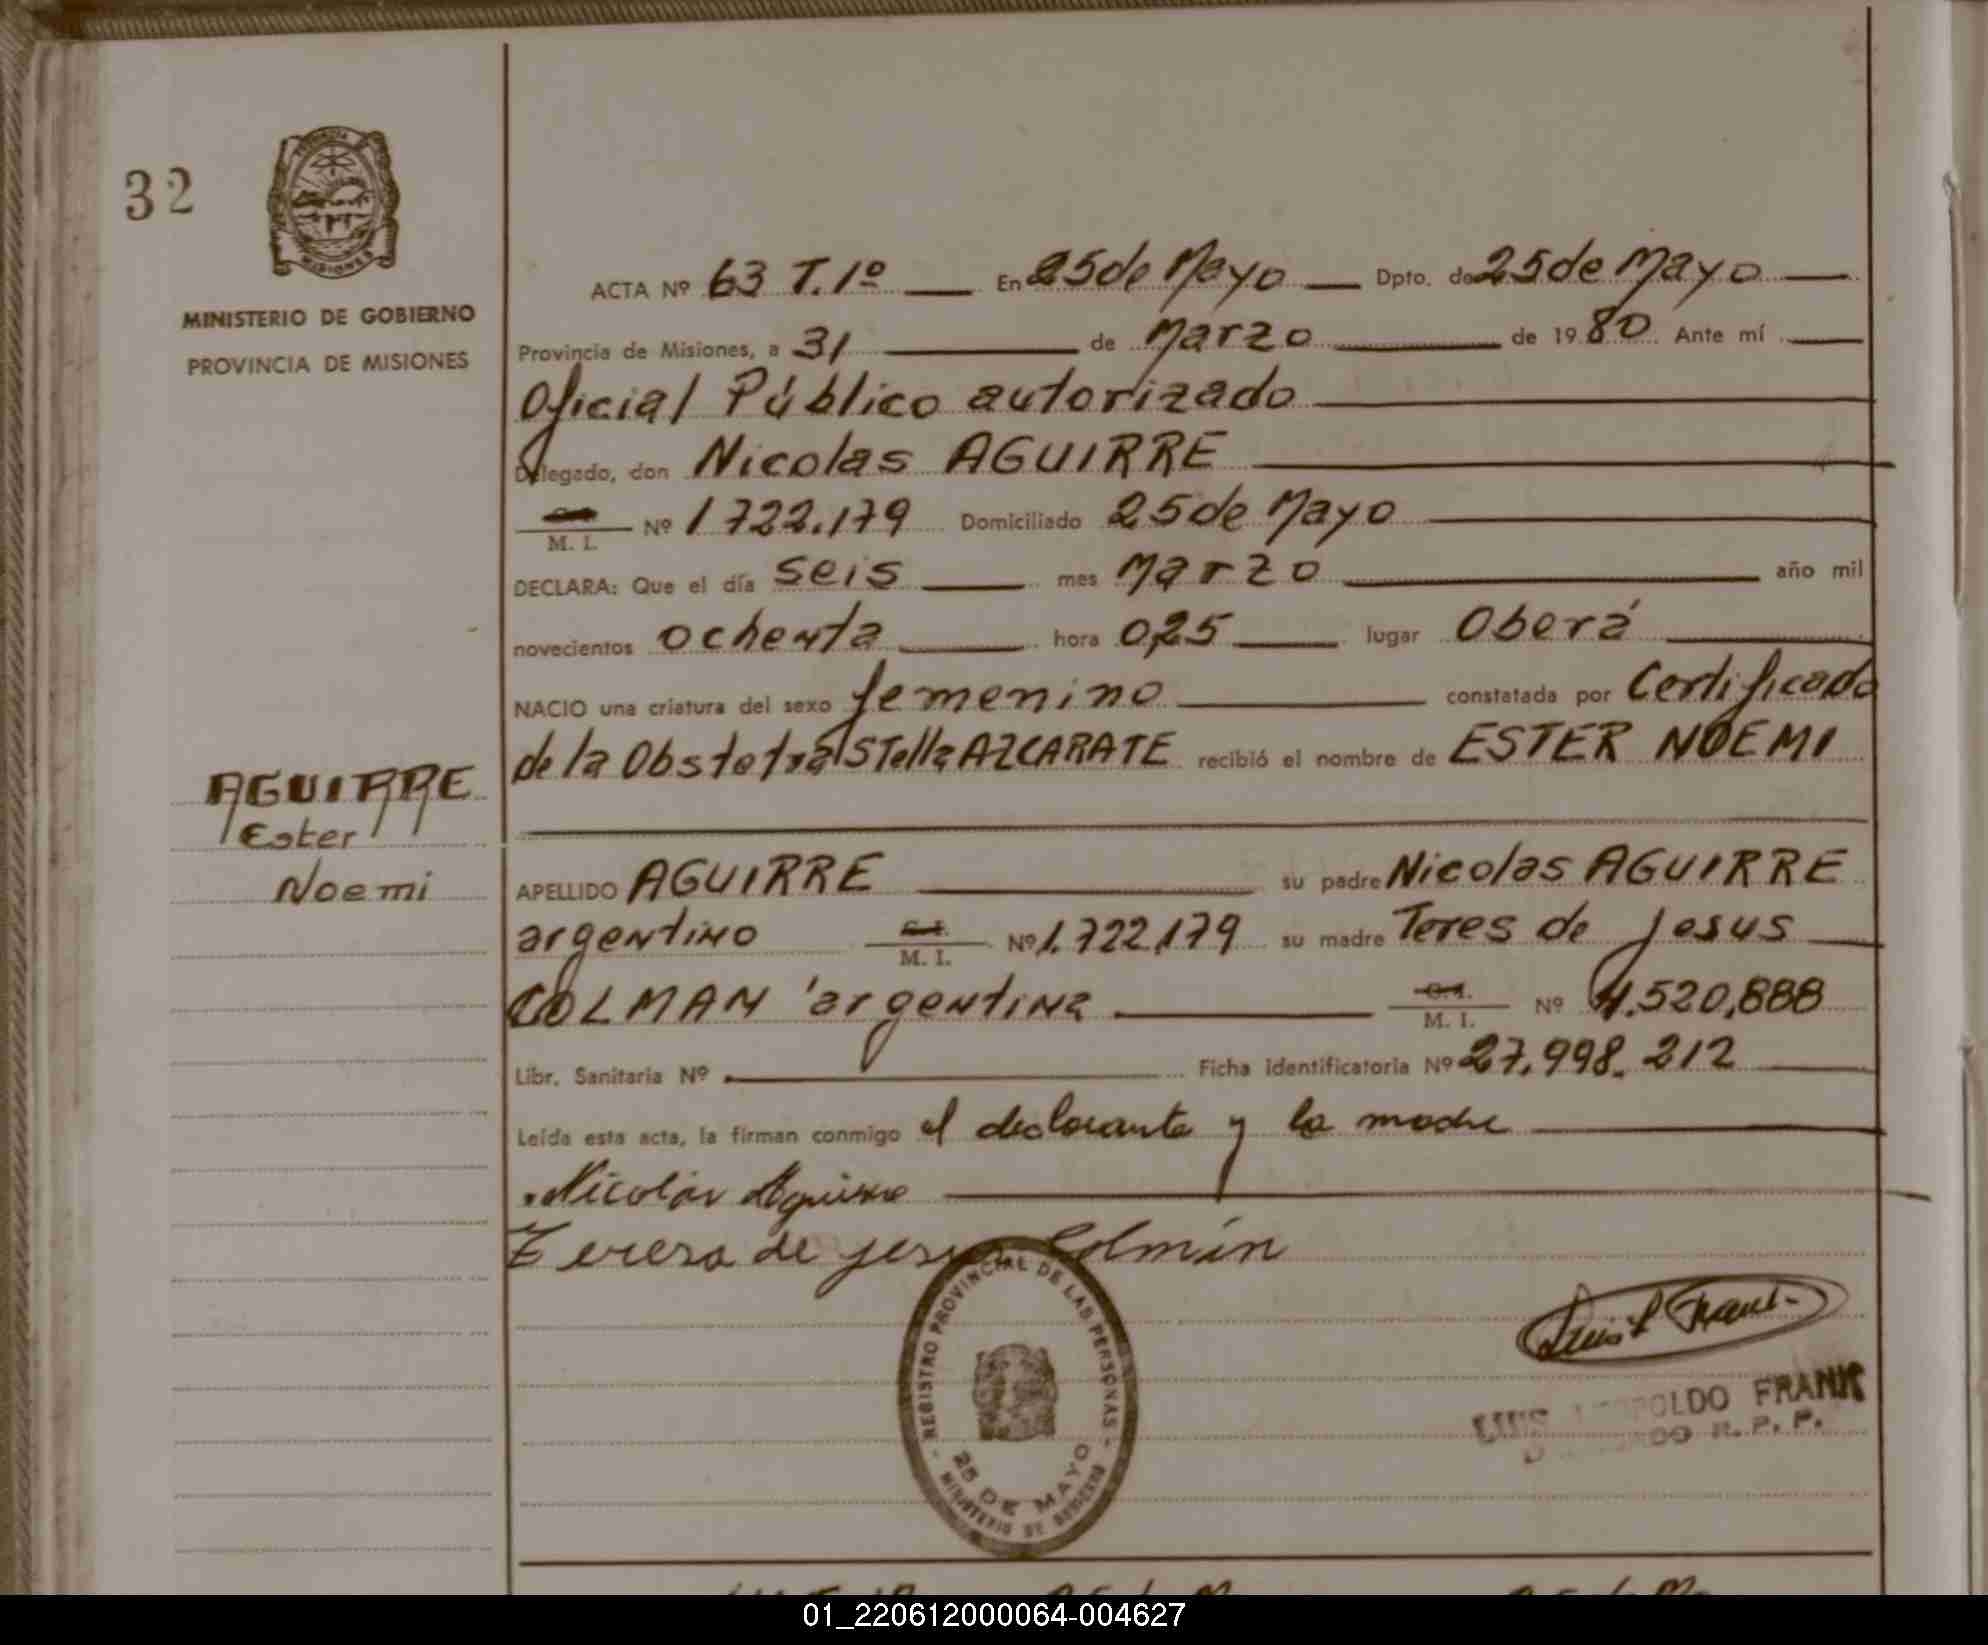 32
MISIONES
MINISTERIO DE GOBIERNO
PROVINCIA DE MISIONES
ACTA Nº 63 T. 1º En 25 de Mayo Dpto. de 25 de Mayo
Provincia de Misiones, a 31 de Marzo de 1980. Ante mí
Oficial Público autorizado
Delegado, don Nicolas AGUIRRE
M. I. Nº 1722.179 Domiciliado 25 de Mayo
DECLARA: Que el día seis mes Marzo año mil
novecientos ochenta hora 0,25 lugar Oberá
NACIO una criatura del sexo femenino constatada por Certificado
de la Obstetra STella AZCARATE recibió el nombre de ESTER NOEMI
AGUIRRE
Ester
Noemi
APELLIDO AGUIRRE su padre Nicolas AGUIRRE
argentino C.I. M. I. Nº 1.722.179 su madre Teres de Jesus
COLMAN argentina C.I. M. I. Nº 4.520.888
Libr. Sanitaria Nº Ficha identificatoria Nº 27.998.212
Leída esta acta, la firman conmigo el declarante y la madre
Nicolás Aguirre
Teresa de jesus Colmán
REGISTRO PROVINCIAL DE LAS PERSONAS
25 DE MAYO
MINISTERIO DE GOBIERNO
LUIS LEOPOLDO FRANK
R. P. P.
01_220612000064-004627